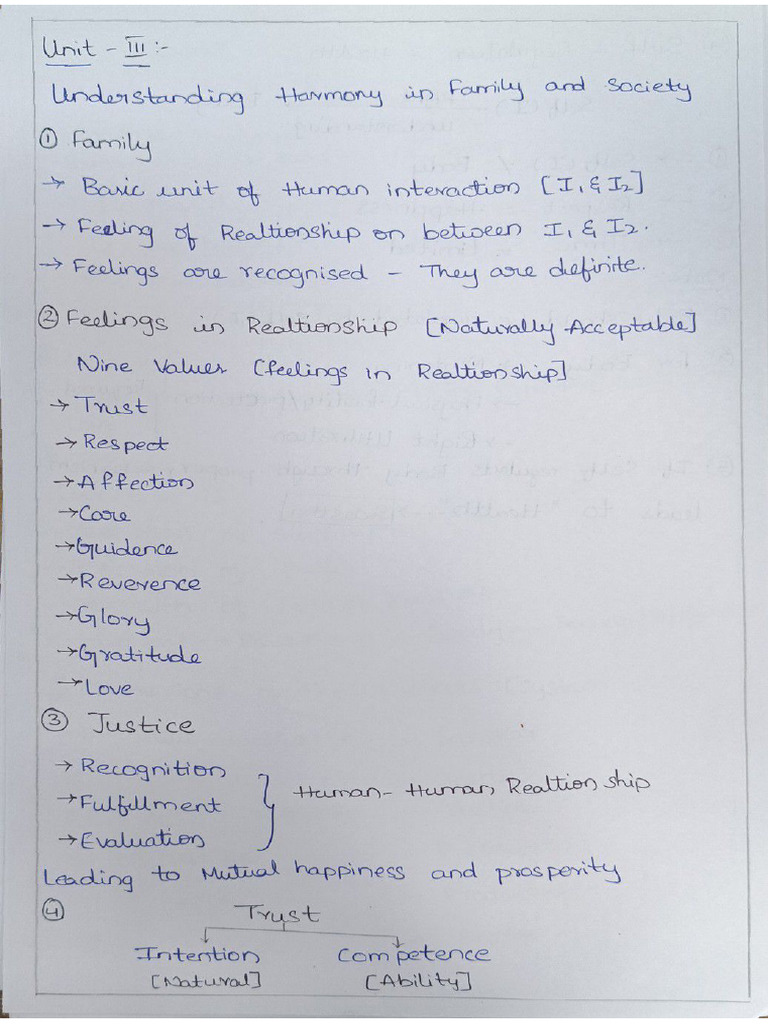 Unit - III :-
Understanding Harmony in Family and Society
① Family
→ Basic unit of Human interaction [I1 & I2]
→ Feeling of Realtionship on between I1 & I2.
→ Feelings are recognised - They are definite.
② Feelings in Realtionship [Naturally Acceptable]
Nine Values [feelings in Realtionship]
→ Trust
→ Respect
→ Affection
→ Care
→ Guidence
→ Reverence
→ Glory
→ Gratitude
→ Love
③ Justice
→ Recognition
→ Fulfillment
→ Evaluation
Human - Human Realtionship
Leading to Mutual happiness and prosperity
④ Trust
Intention Competence
[Natural] [Ability]